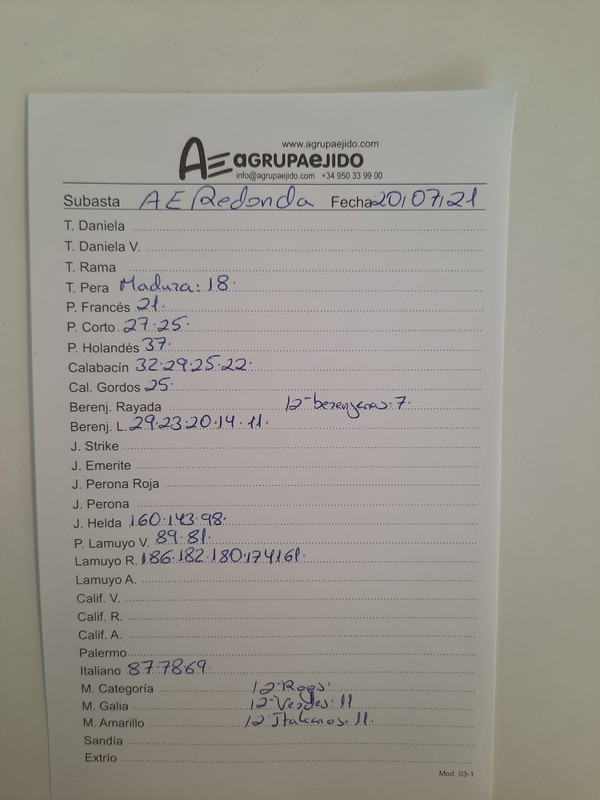 www.agrupaejido.com
AE AGRUPAEJIDO
info@agrupaejido.com +34 950 33 99 00
Subasta AE Redonda Fecha 20/07/21
T. Daniela
T. Daniela V.
T. Rama
T. Pera Madura: 18.
P. Francés 21.
P. Corto 27.25.
P. Holandés 37.
Calabacín 32.29.25.22.
Cal. Gordos 25.
Berenj. Rayada 12-berenjenas: 7.
Berenj. L. 29.23.20.14.11.
J. Strike
J. Emerite
J. Perona Roja
J. Perona
J. Helda 160.143.98.
P. Lamuyo V. 89.81.
Lamuyo R. 186.182.180.174161.
Lamuyo A.
Calif. V.
Calif. R.
Calif. A.
Palermo
Italiano 87.78.69.
M. Categoría 12-Rojos.
M. Galia 12-Verdes: 11
M. Amarillo 12-Italianos: 11.
Sandía
Extrío
Mod. 03-1